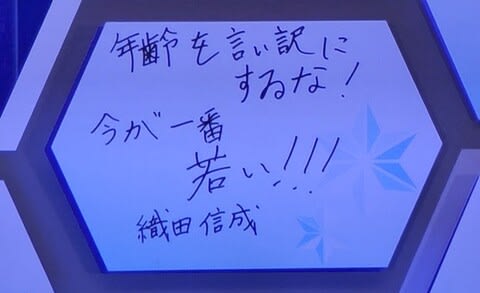 年齢を言い訳に
するな!
今が一番
若い!!!
織田信成